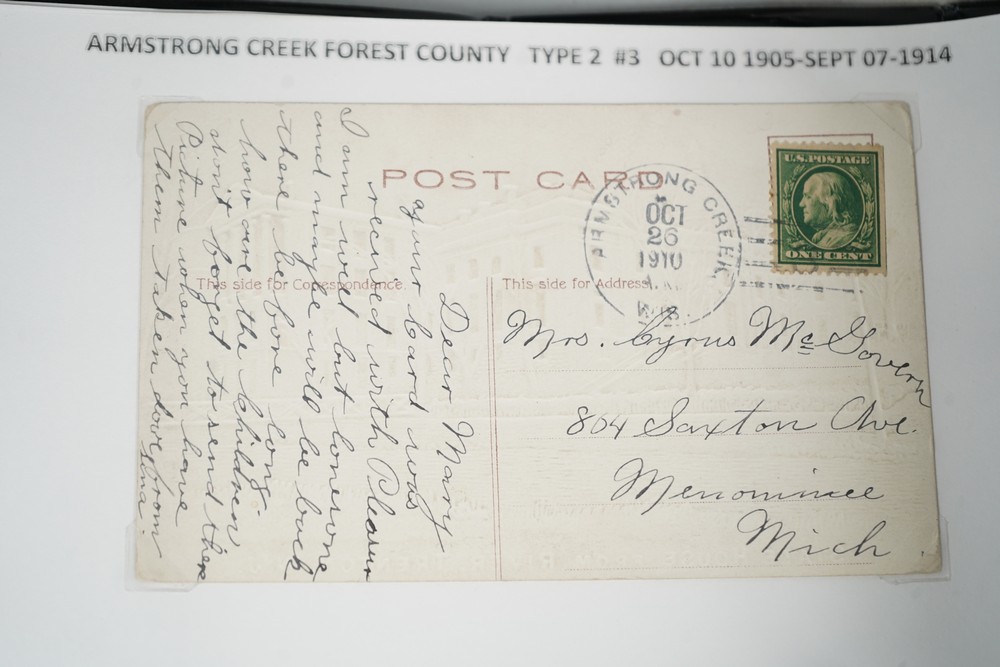 ARMSTRONG CREEK FOREST COUNTY TYPE 2 #3 OCT 10 1905-SEPT 07-1914
POST CARD
ARMSTRONG CREEK
OCT
26
1910
WIS.
U.S. POSTAGE
ONE CENT
This side for Correspondence.
This side for Address.
Dear Mary
your card was
recived with Pleasur
I am well but lonesome
and maybe will be back
there before long.
how are the children
don't forget to send there
Picture when you have
them taken dove from
Ana.
Mrs. Cyrus McGovern
804 Saxton Ave.
Menominee
Mich.